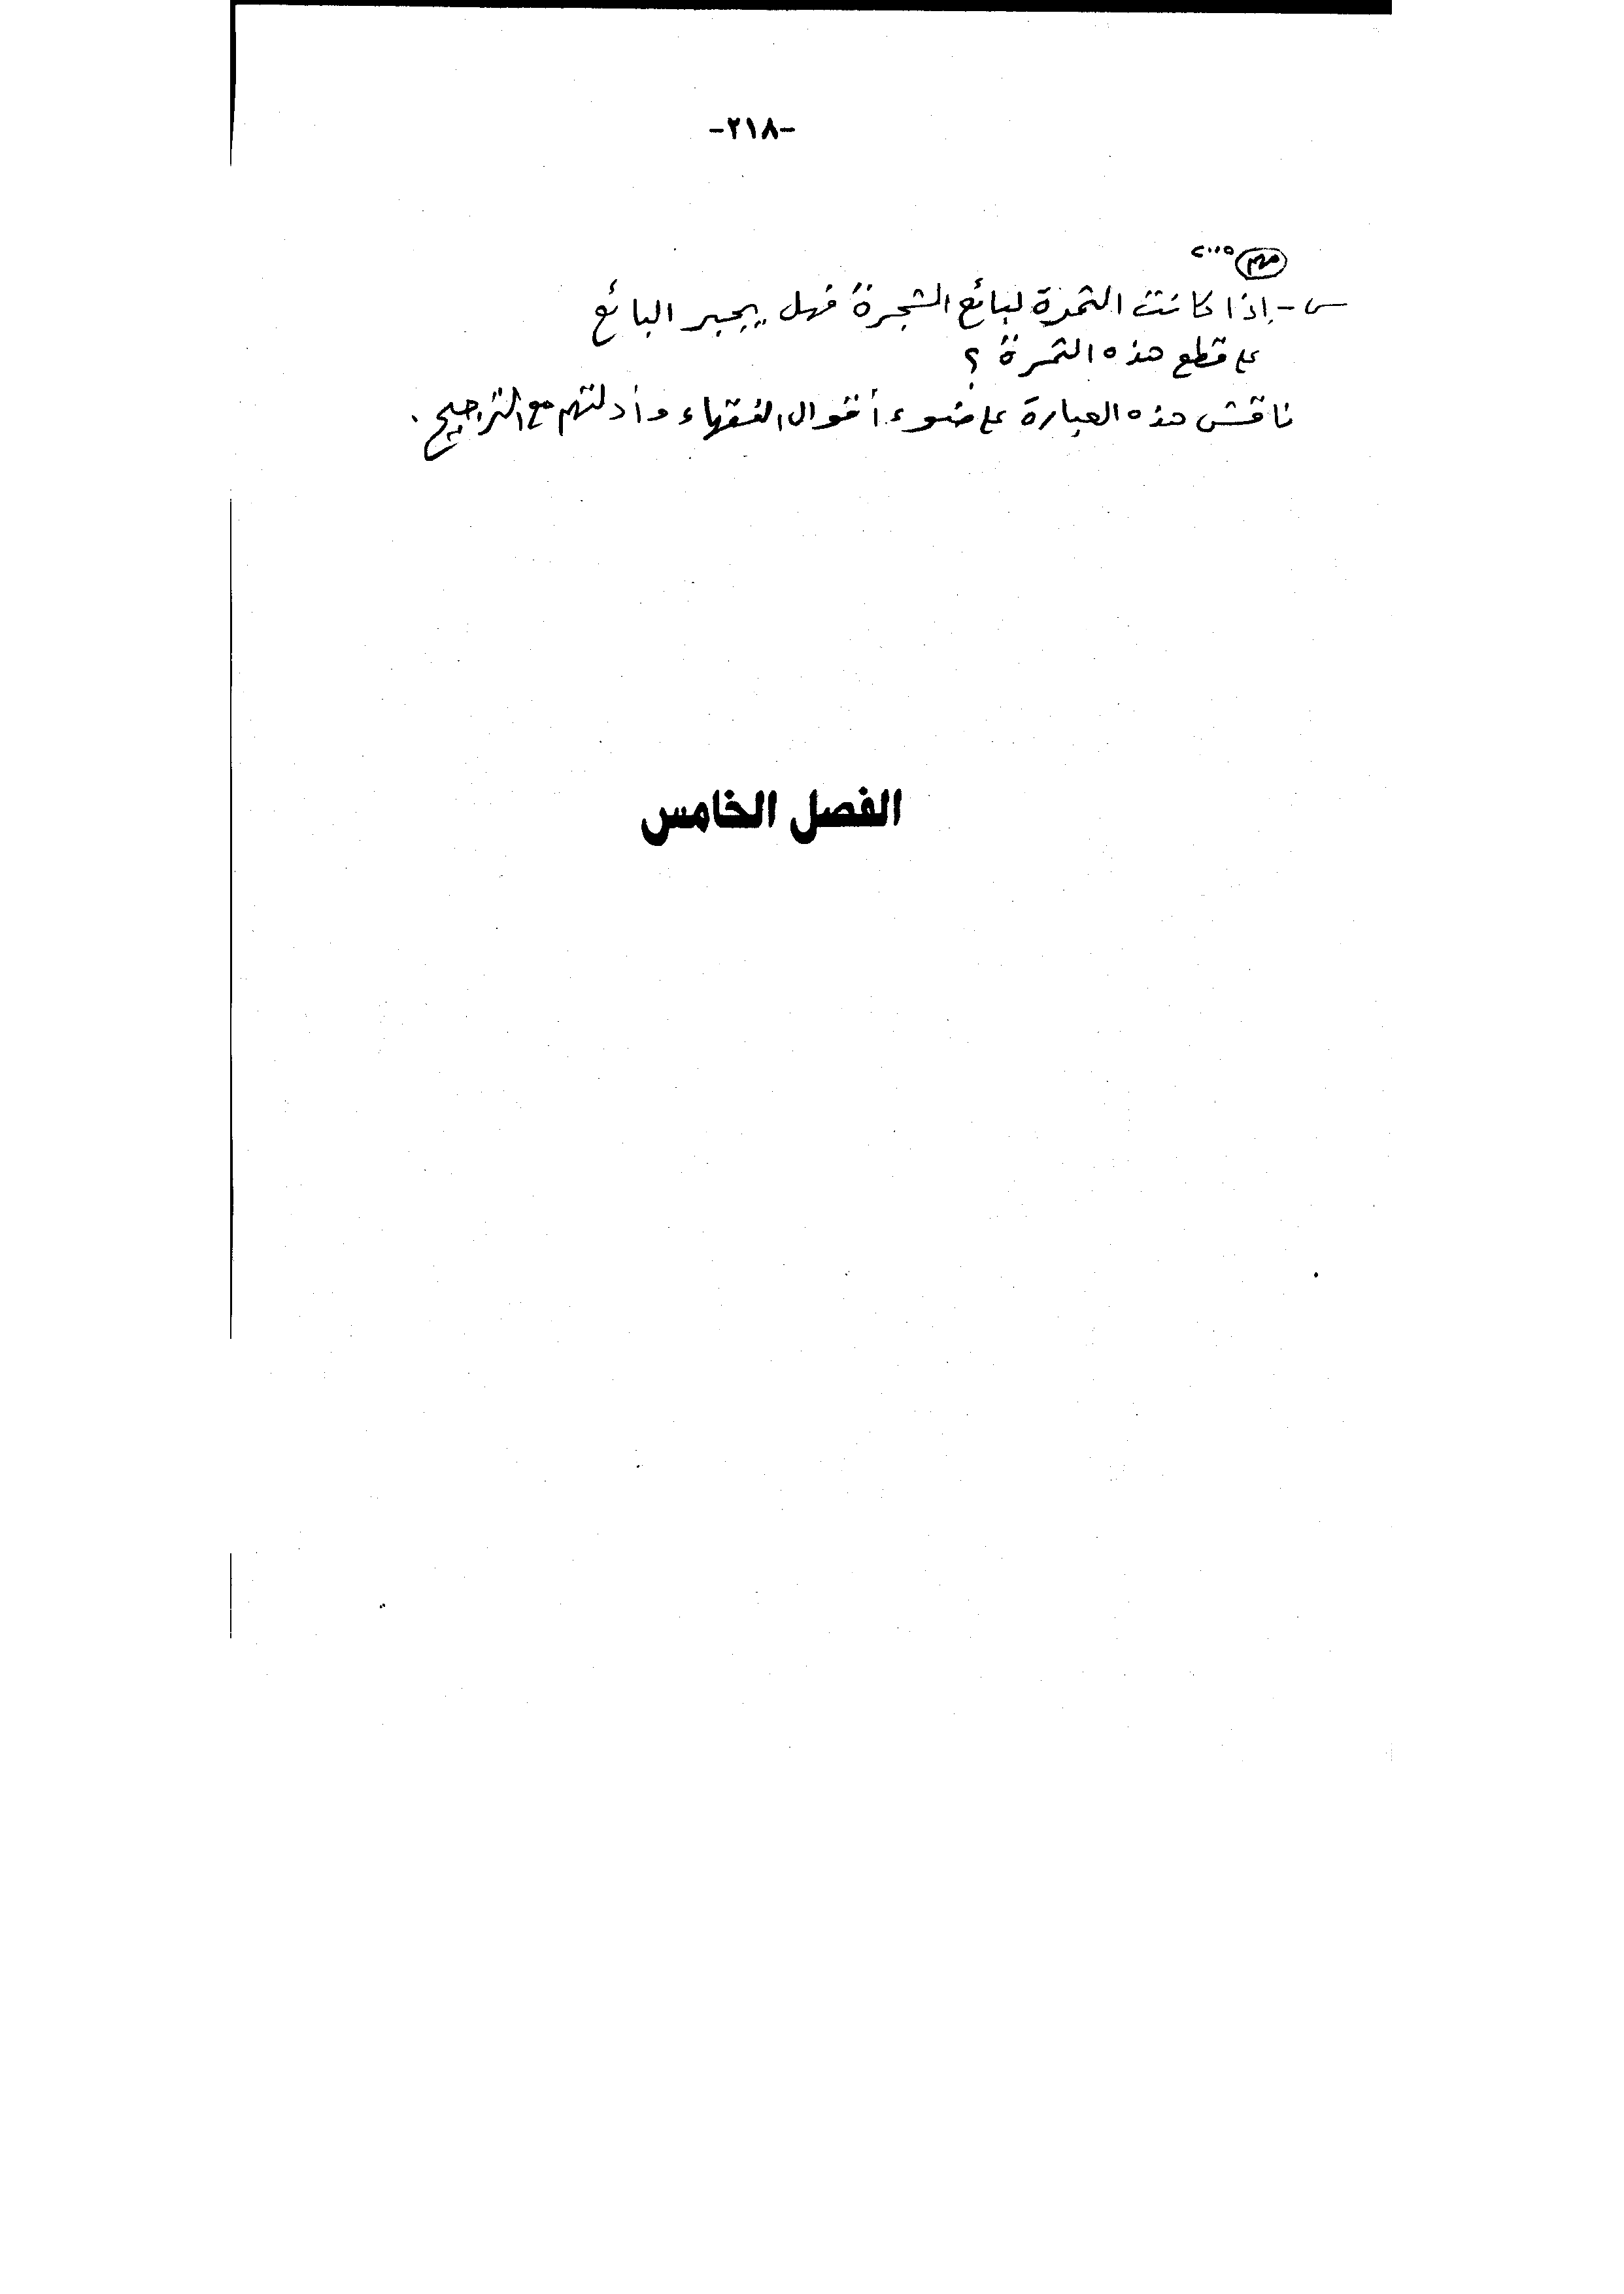 -٢١٨-
مهم ٢٠٠٥
س - إذا كانت الثمرة لبائع الشجرة فهل يجبر البائع
على قطع هذه الثمرة ؟
ناقش هذه العبارة على ضوء أقوال الفقهاء وأدلتهم مع الترجيح .
الفصل الخامس